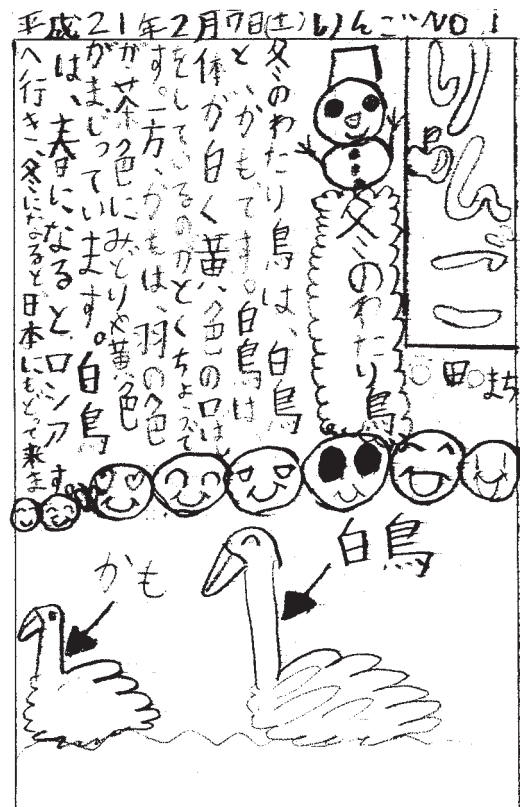 平成21年2月7日(土)りんごNO 1
りんご
田 まち
冬のわたり鳥
冬のわたり鳥は、白鳥
と、かもです。白鳥は
体が白く黄色の口ばし
をしているのがとくちょうで
す。一方、かもは、羽の色
が茶色にみどりや黄色
がまじっています。白鳥
は、春になるとロシア
へ行き、冬になると日本にもどって来ま
す。
白鳥
かも